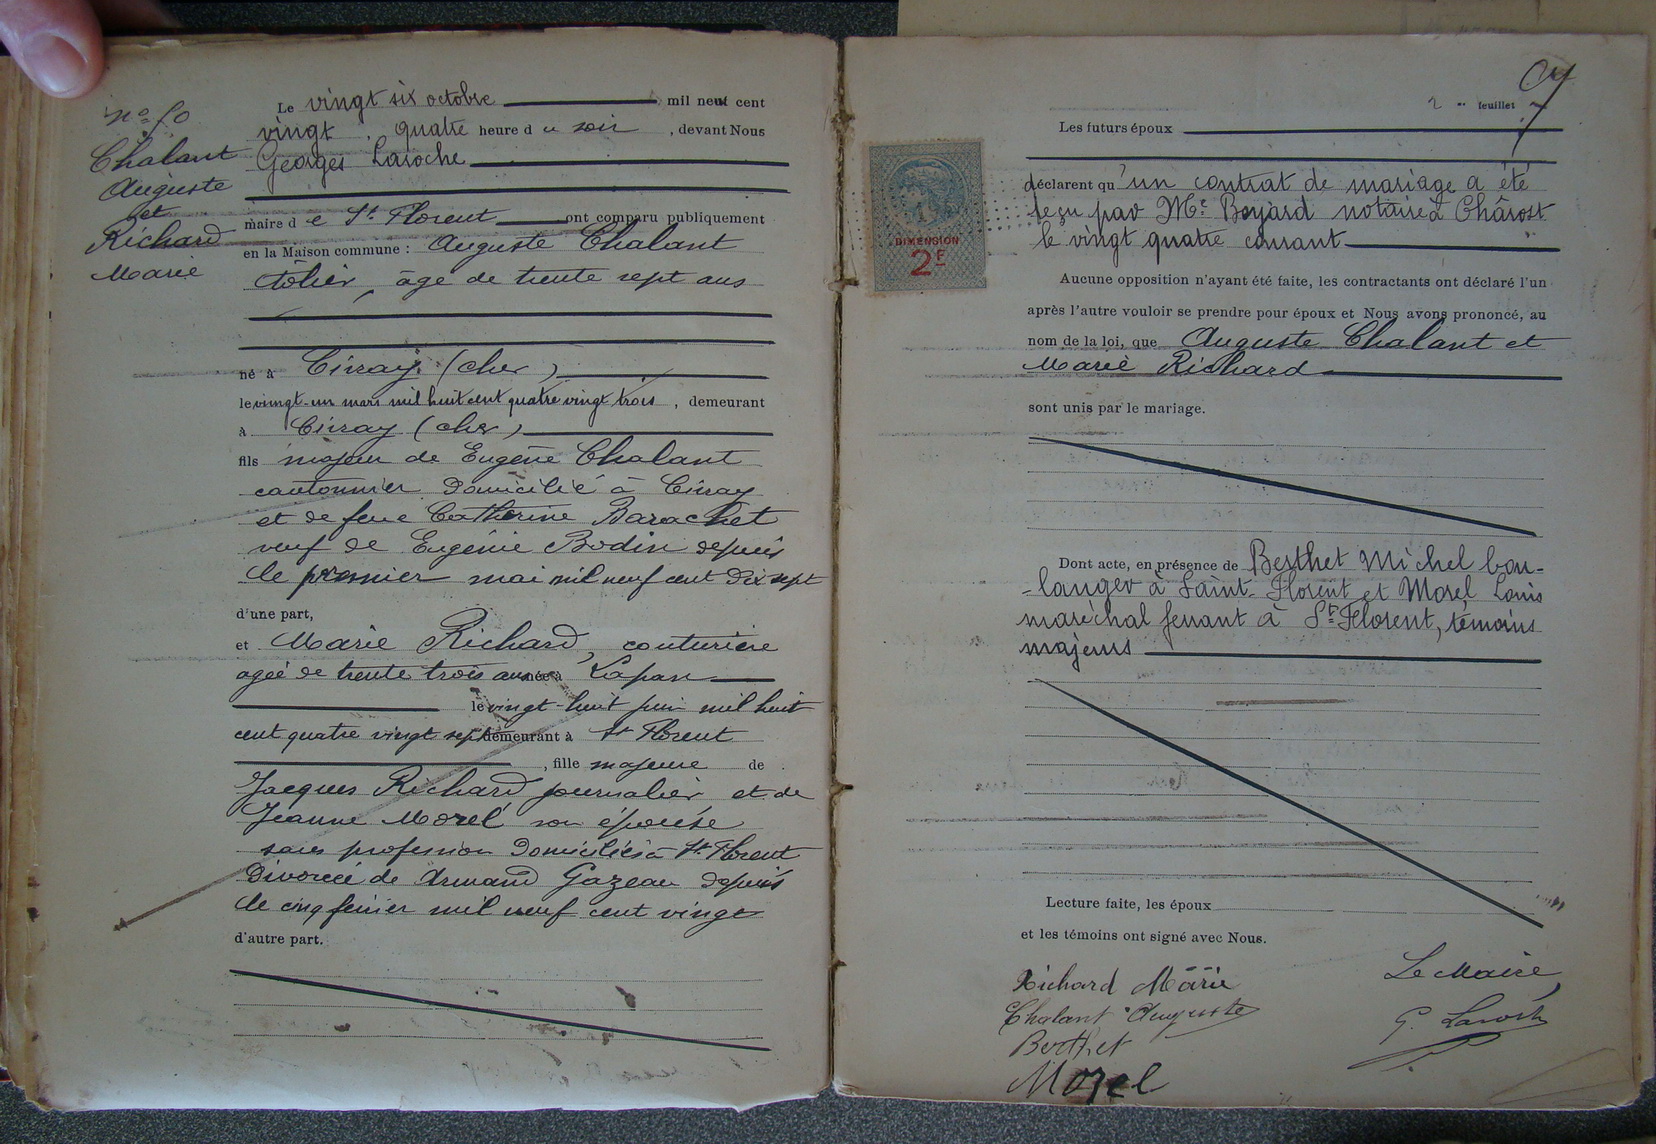 nº 10
Chalant
Auguste
et
Richard
Marie
Le vingt six octobre mil neuf cent
vingt quatre heure du soir, devant Nous
Georges Laroche
maire de St Florent ont comparu publiquement
en la Maison commune : Auguste Chalant
tôlier, âgé de trente sept ans
né à Civray (cher)
le vingt-un mars mil huit cent quatre vingt trois, demeurant
à Civray (cher)
fils majeur de Eugène Chalant
cantonnier domicilié à Civray
et de feue Catherine Barachet
veuf de Eugénie Bodin depuis
le premier mai mil neuf cent dix sept
d'une part,
et Marie Richard, couturière
agée de trente trois ans née à Lapan
le vingt-huit juin mil huit
cent quatre vingt sept demeurant à St Florent
, fille majeure de
Jacques Richard journalier et de
Jeanne Morel son épouse
sans profession domiciliés à St Florent
divorcée de Armand Gazeau depuis
le cinq février mil neuf cent vingt
d'autre part.
2 me feuillet 7
Les futurs époux
déclarent qu'un contrat de mariage a été
reçu par Me Boyard notaire à Chârost
le vingt quatre courant
DIMENSION
2F
Aucune opposition n'ayant été faite, les contractants ont déclaré l'un
après l'autre vouloir se prendre pour époux et Nous avons prononcé, au
nom de la loi, que Auguste Chalant et
Marie Richard
sont unis par le mariage.
Dont acte, en présence de Berthet Michel bou-
-langer à Saint-Florent et Morel Louis
maréchal ferrant à St Florent, témoins
majeurs
Lecture faite, les époux
et les témoins ont signé avec Nous.
Richard Marie
Chalant Auguste
Berthet
Morel
Le Maire,
G. Laroche